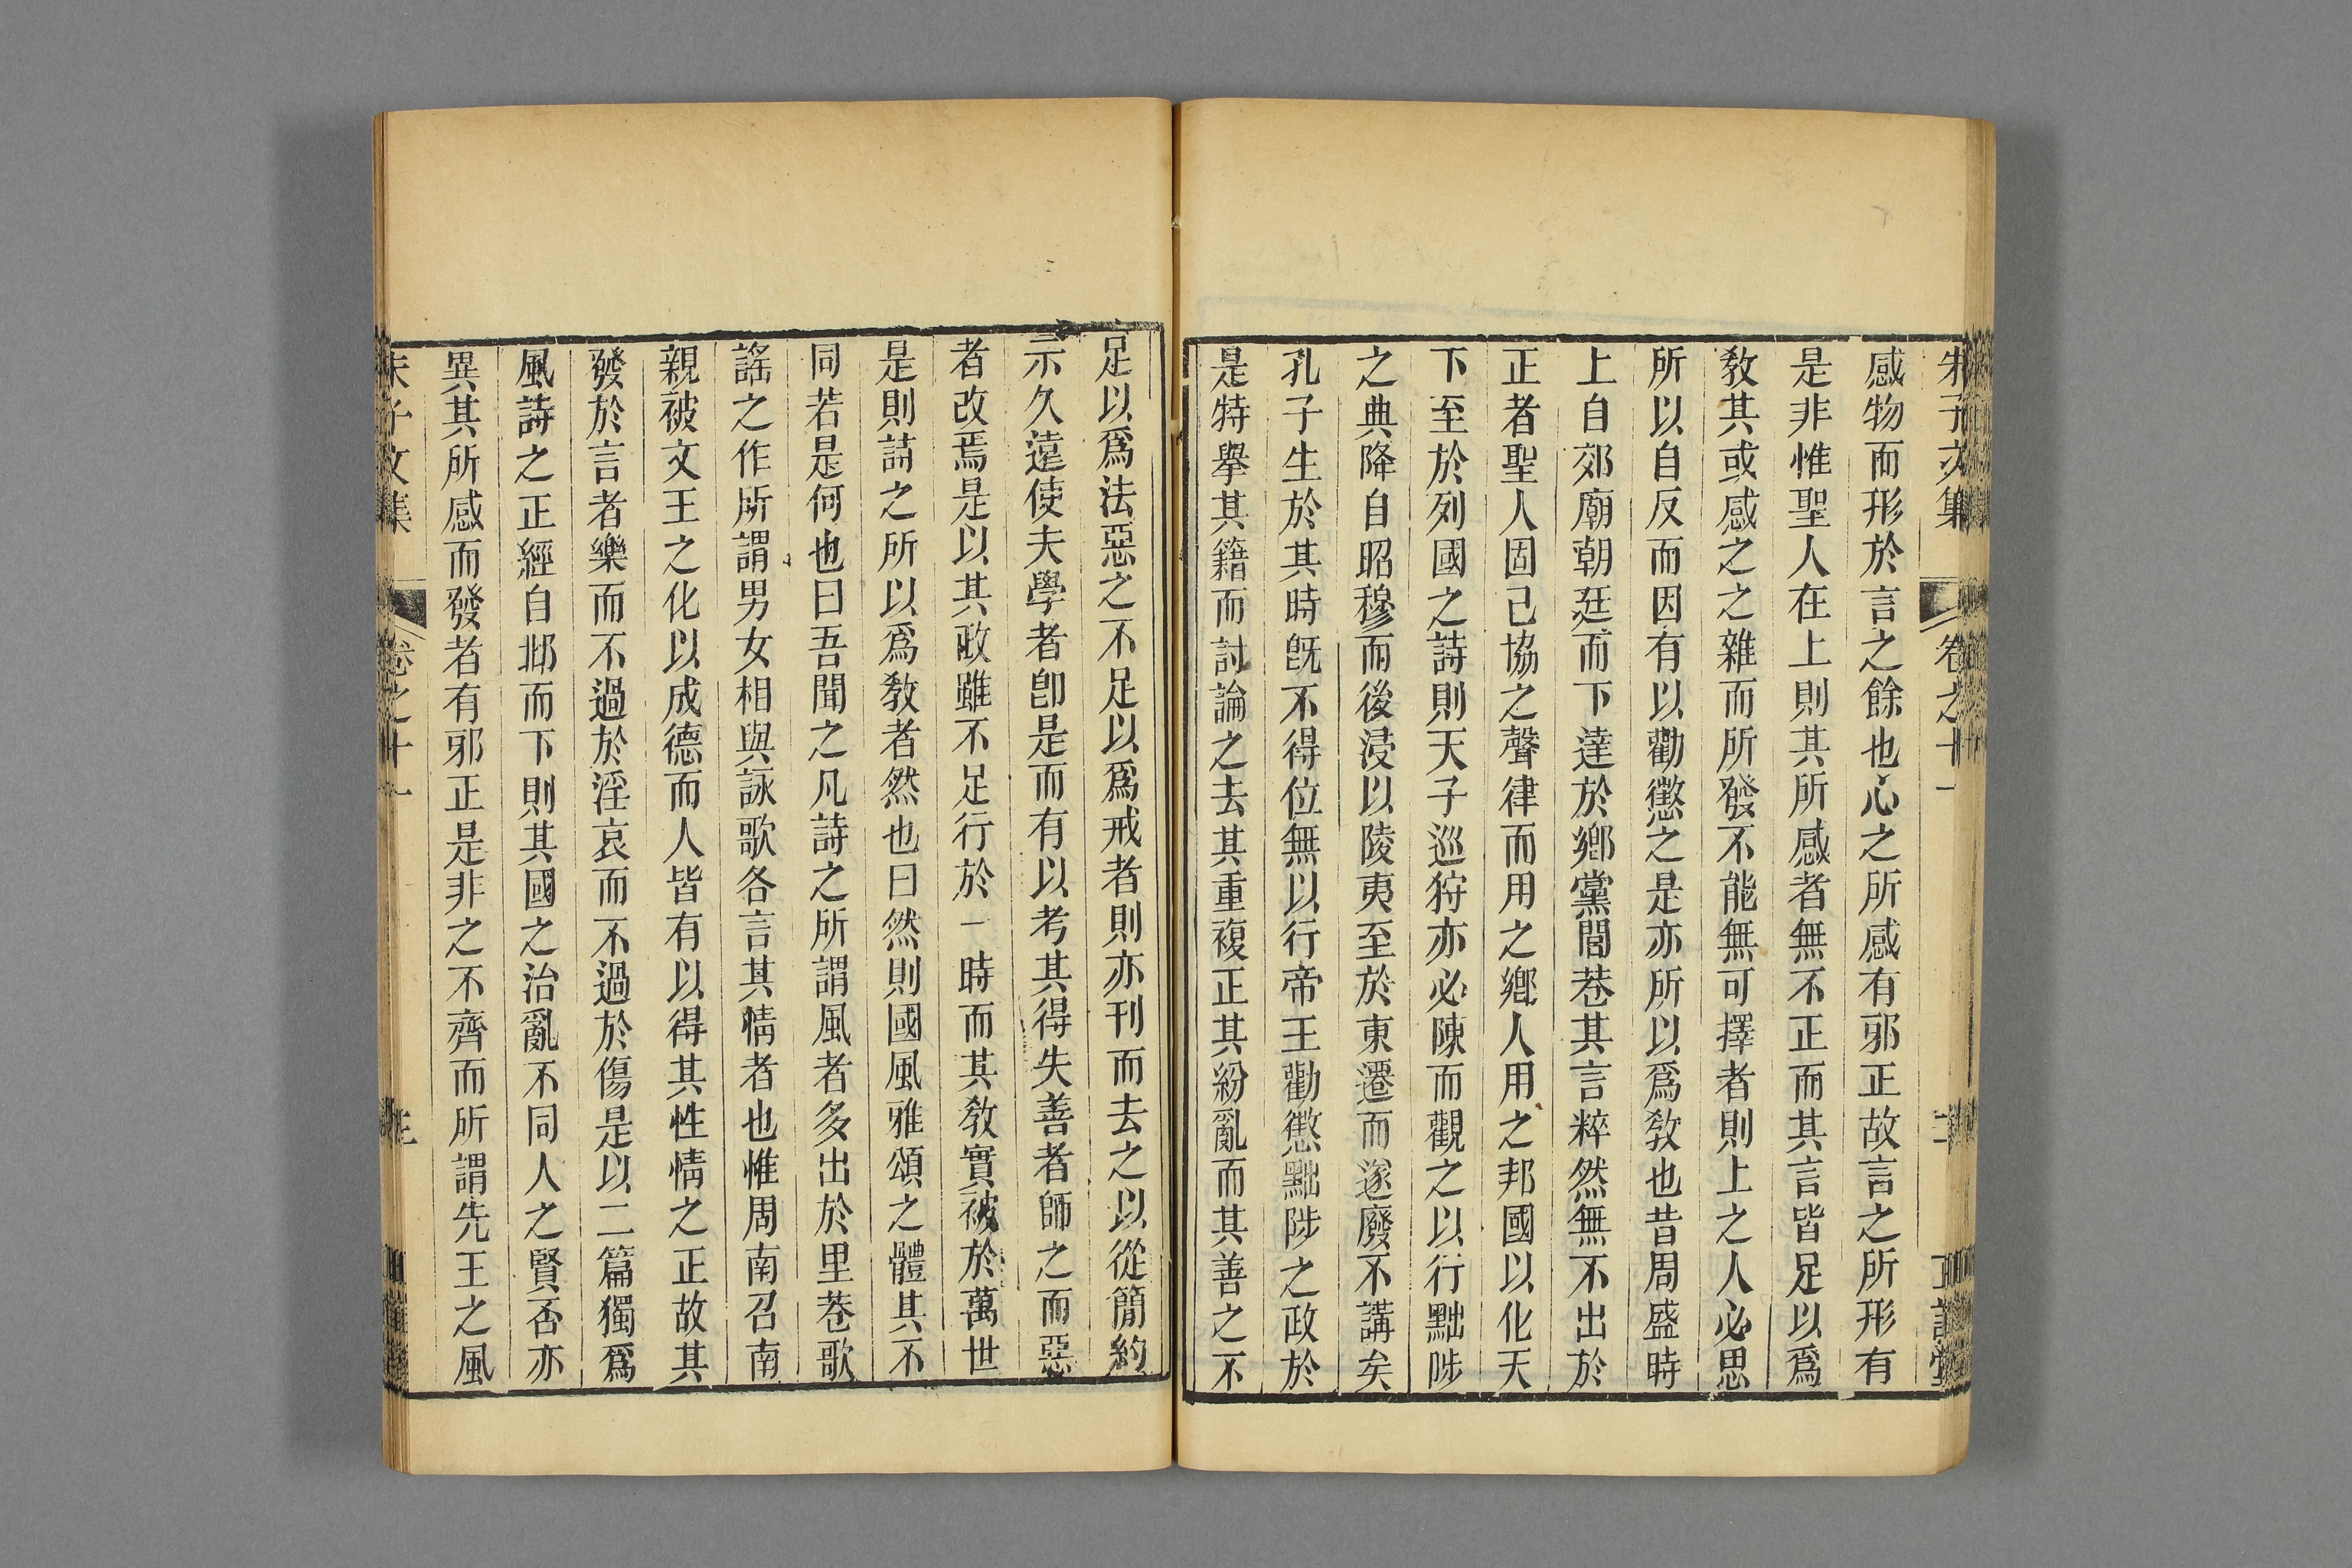 朱子文集 卷之十一 二 正誼堂
感物而形於言之餘也心之所感有邪正故言之所形有
是非惟聖人在上則其所感者無不正而其言皆足以爲
敎其或感之之雜而所發不能無可擇者則上之人必思
所以自反而因有以勸懲之是亦所以爲敎也昔周盛時
上自郊廟朝廷而下達於鄉黨閭巷其言粹然無不出於
正者聖人固已協之聲律而用之鄉人用之邦國以化天
下至於列國之詩則天子巡狩亦必陳而觀之以行黜陟
之典降自昭穆而後浸以陵夷至於東遷而遂廢不講矣
孔子生於其時旣不得位無以行帝王勸懲黜陟之政於
是特舉其籍而討論之去其重複正其紛亂而其善之不
足以爲法惡之不足以爲戒者則亦刊而去之以從簡約
示久遠使夫學者卽是而有以考其得失善者師之而惡
者改焉是以其政雖不足行於一時而其敎實被於萬世
是則詩之所以爲敎者然也曰然則國風雅頌之體其不
同若是何也曰吾聞之凡詩之所謂風者多出於里巷歌
謠之作所謂男女相與詠歌各言其情者也惟周南召南
親被文王之化以成德而人皆有以得其性情之正故其
發於言者樂而不過於淫哀而不過於傷是以二篇獨爲
風詩之正經自邶而下則其國之治亂不同人之賢否亦
異其所感而發者有邪正是非之不齊而所謂先王之風
朱子文集 卷之十一